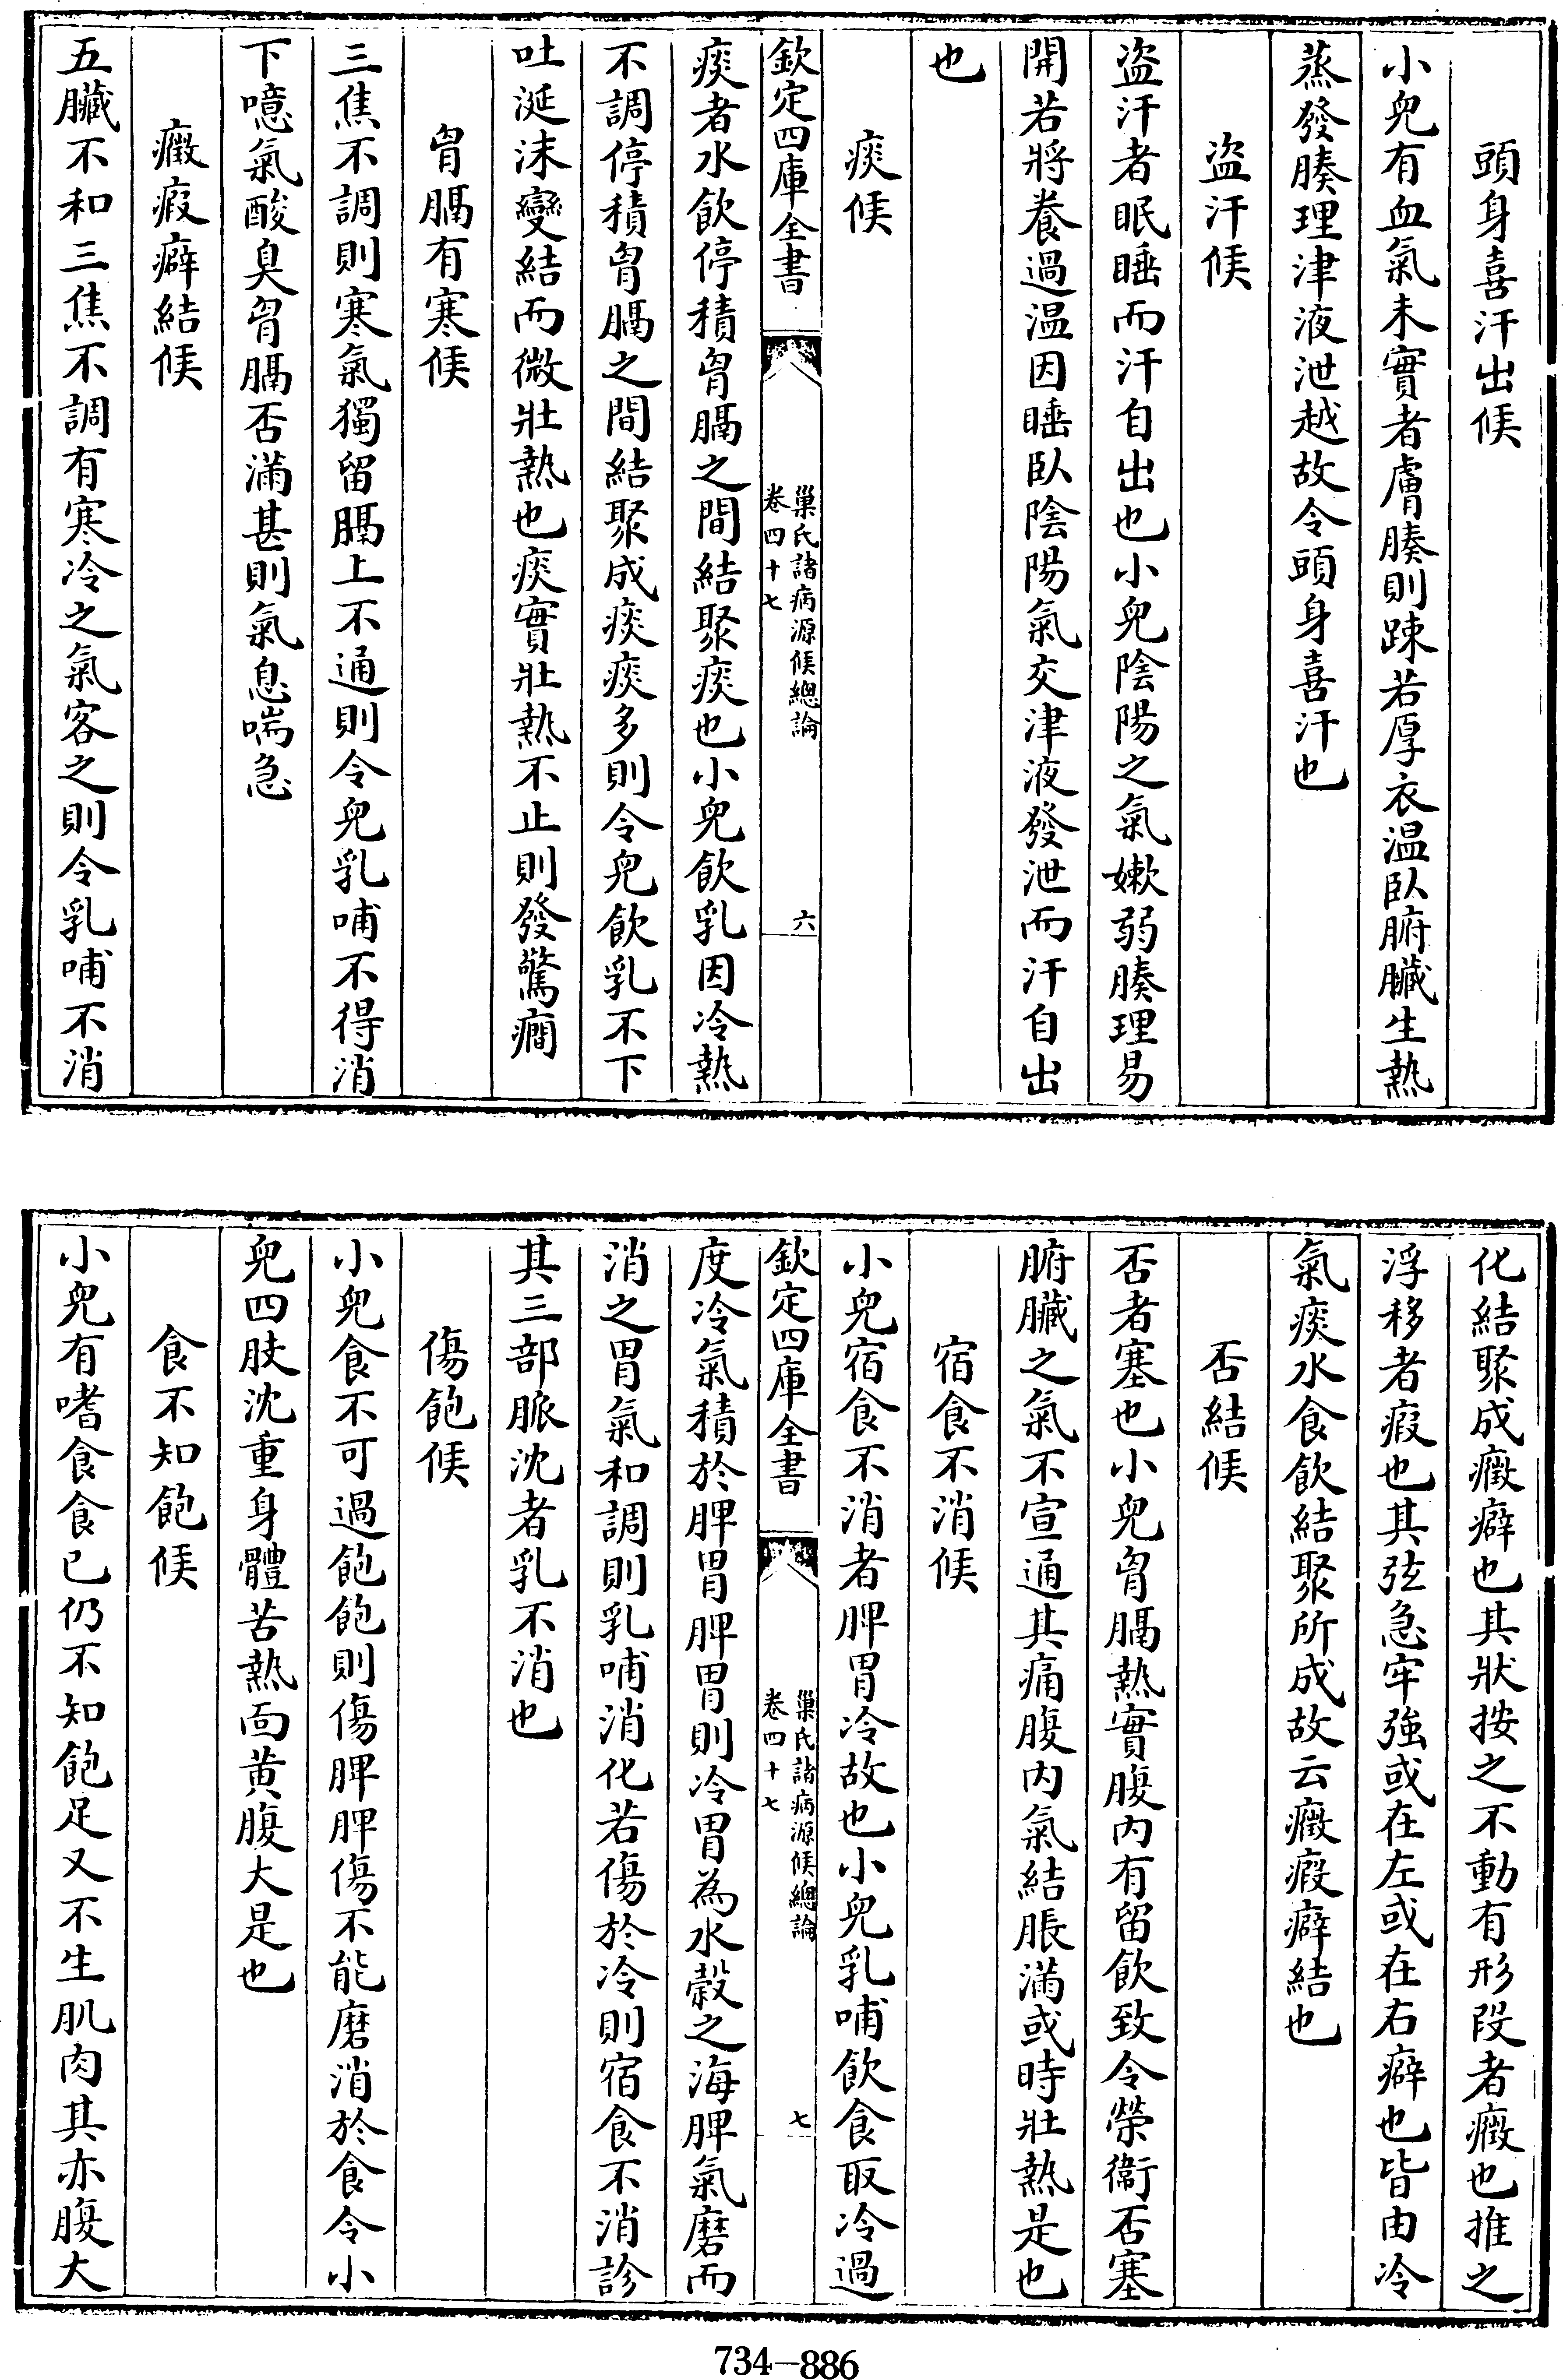 頭身喜汗出候
小兒有血氣未實者膚腠則踈若厚衣温臥腑臟生熱
蒸發腠理津液泄越故令頭身喜汗也
盗汗候
盗汗者眠睡而汗自出也小兒陰陽之氣嫩弱腠理易
開若將養過温因睡臥陰陽氣交津液發泄而汗自出
也
痰候
欽定四庫全書
巢氏諸病源候總論
卷四十七
六
痰者水飲停積胷膈之間結聚痰也小兒飲乳因冷熱
不調停積胷膈之間結聚成痰痰多則令兒飲乳不下
吐涎沫變結而微壯熱也痰實壯熱不止則發驚癇
胷膈有寒候
三焦不調則寒氣獨留膈上不通則令兒乳哺不得消
下噫氣酸臭胷膈否滿甚則氣息喘急
癥瘕癖結候
五臟不和三焦不調有寒冷之氣客之則令乳哺不消
化結聚成癥癖也其狀按之不動有形段者癥也推之
浮移者瘕也其弦急牢強或在左或在右癖也皆由冷
氣痰水食飲結聚所成故云癥瘕癖結也
否結候
否者塞也小兒胷膈熱實腹内有留飲致令榮衞否塞
腑臟之氣不宣通其痛腹内氣結脹滿或時壯熱是也
宿食不消候
小兒宿食不消者脾胃冷故也小兒乳哺飲食取冷過
欽定四庫全書
巢氏諸病源候總論
卷四十七
七
度冷氣積於脾胃脾胃則冷胃為水穀之海脾氣磨而
消之胃氣和調則乳哺消化若傷於冷則宿食不消診
其三部脈沈者乳不消也
傷飽候
小兒食不可過飽飽則傷脾脾傷不能磨消於食令小
兒四肢沈重身體苦熱面黄腹大是也
食不知飽候
小兒有嗜食食已仍不知飽足又不生肌肉其亦腹大
734-886